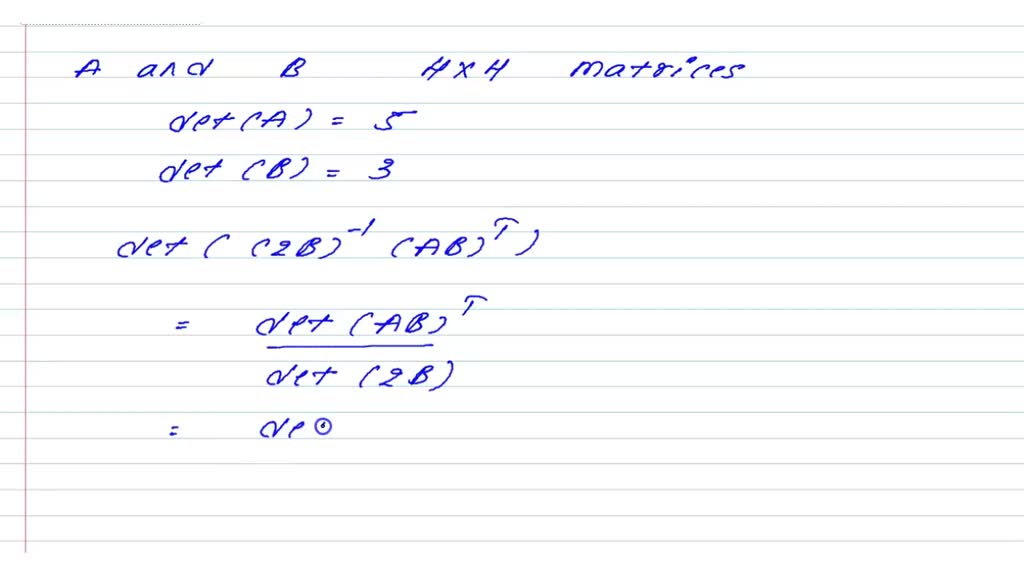 A and B 4×4 matrices
det(A) = 5
det (B) = 3
det ( (2B)^-1 (AB)^T )
= det (AB)^T
det (2B)
= de